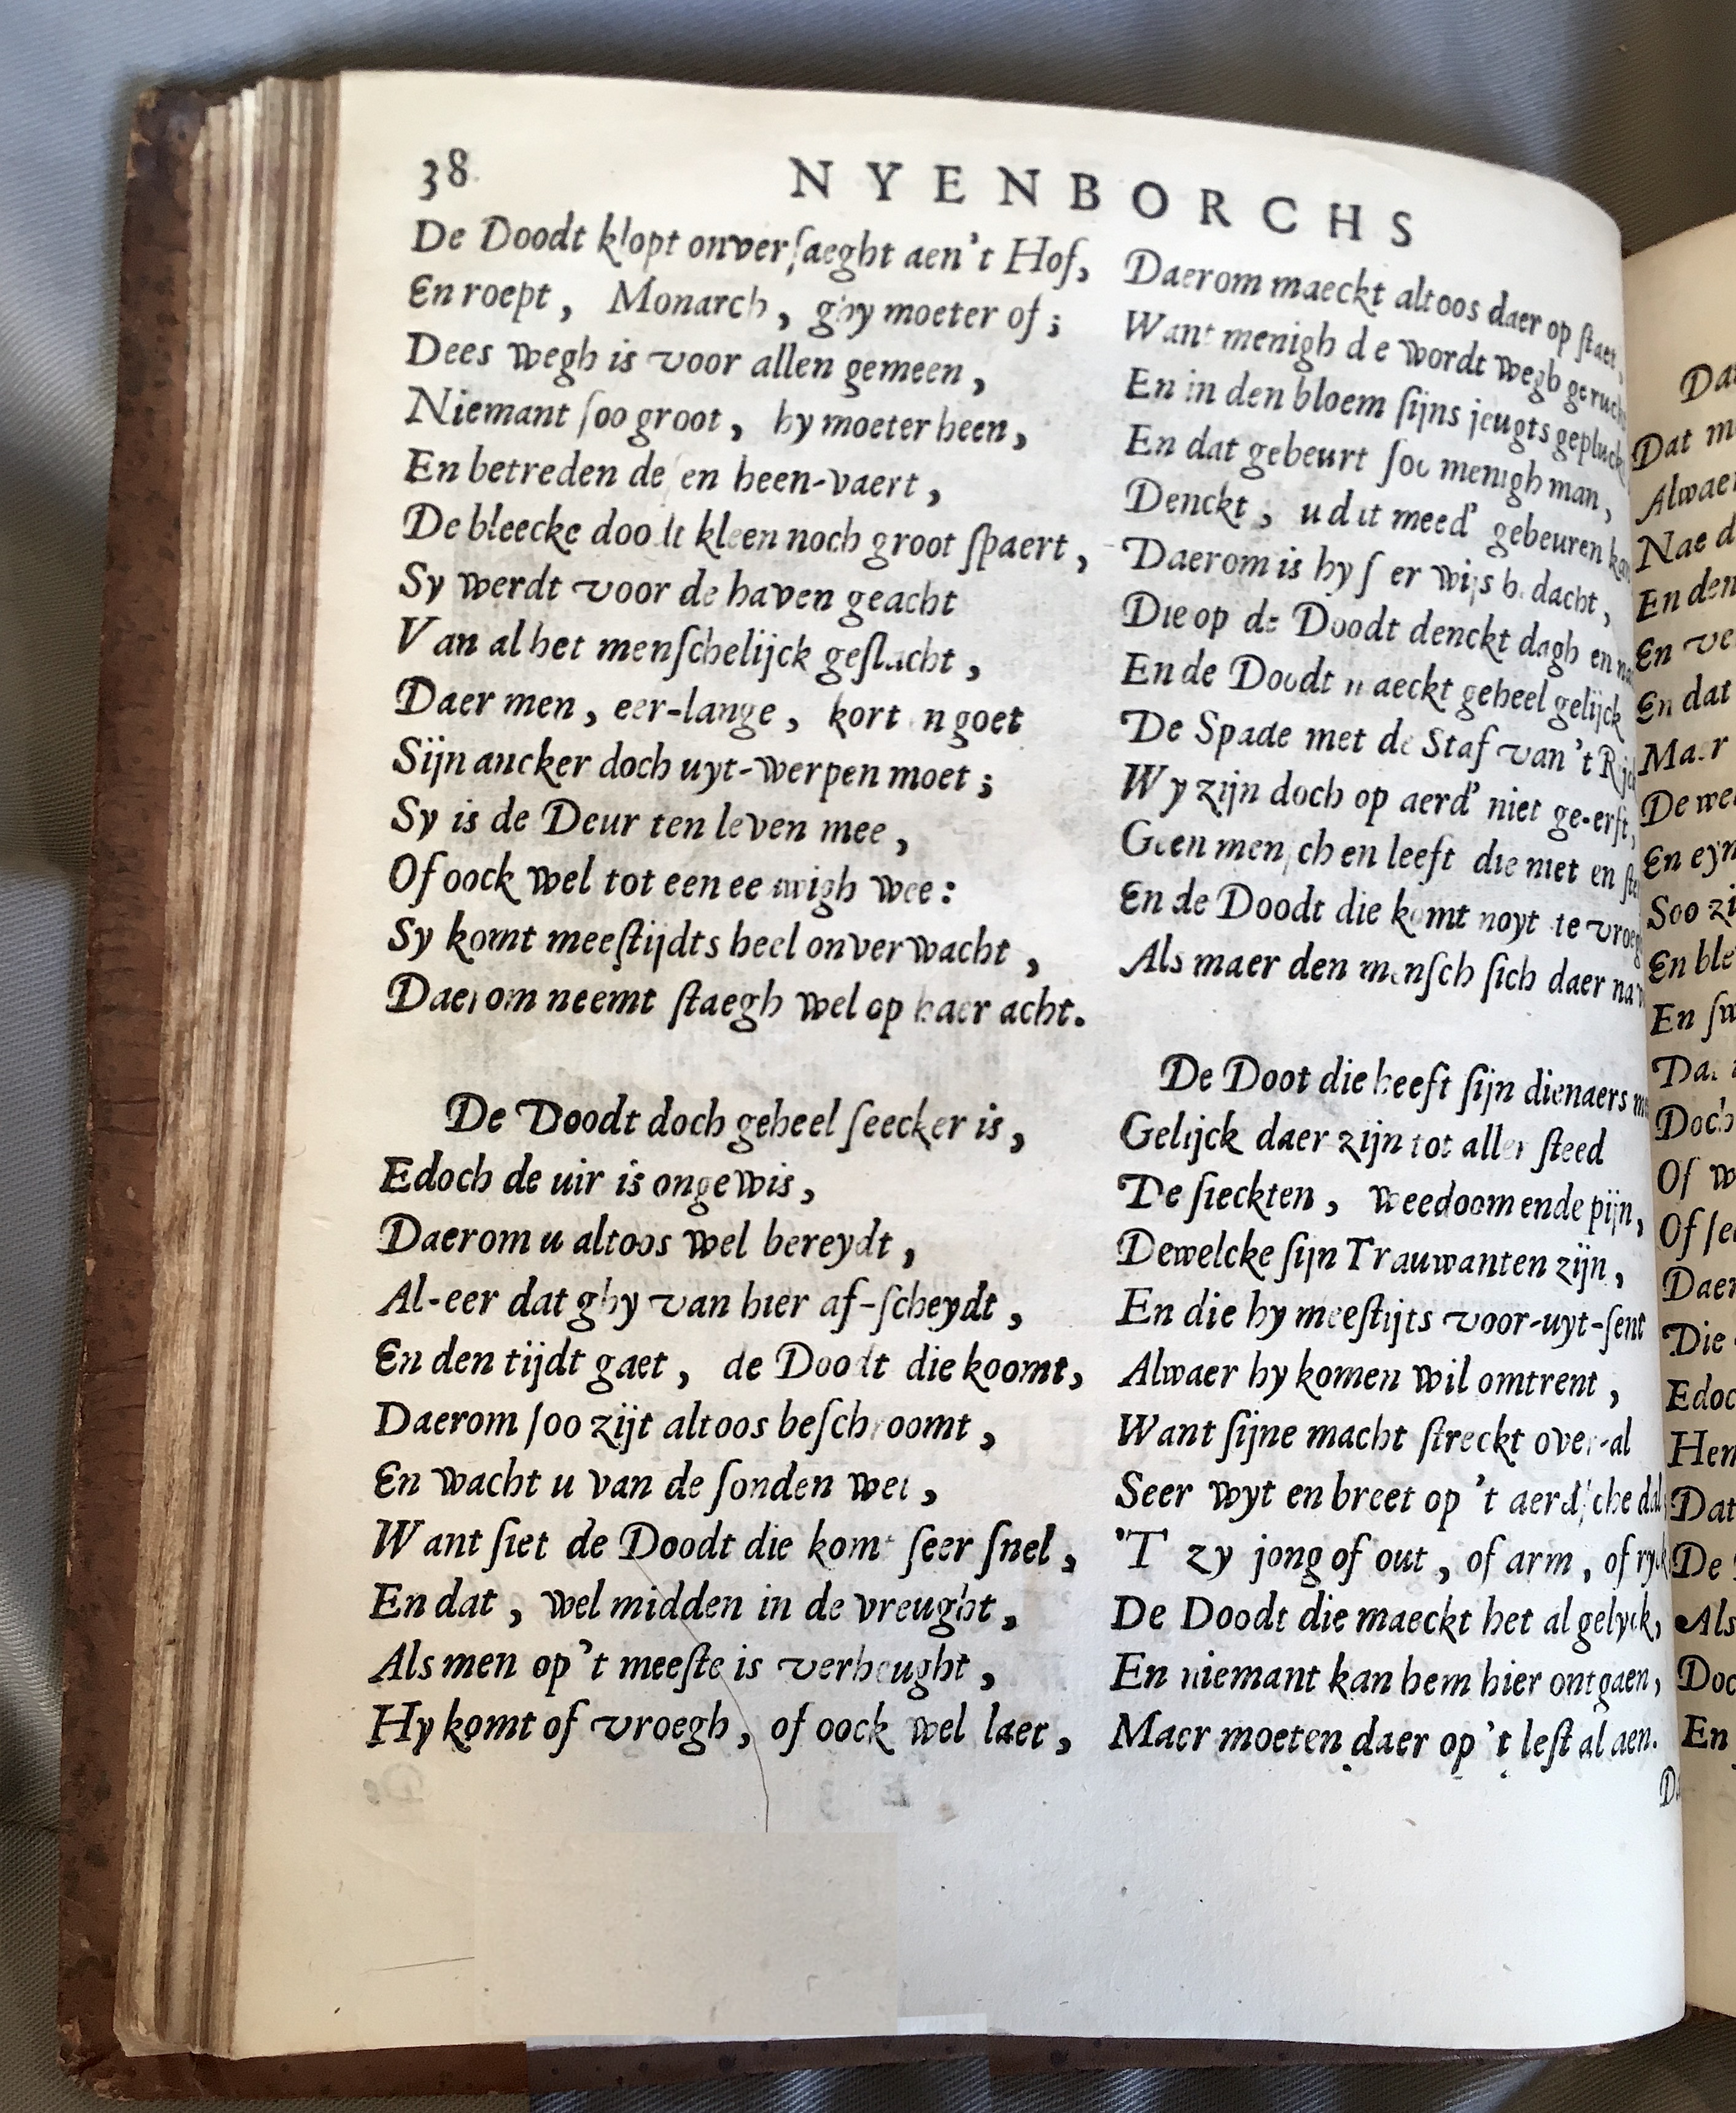 38
NYENBORCHS
De Doodt klopt onverſaeght aen't Hof,
En roept, Monarch, ghy moeter of;
Dees wegh is voor allen gemeen,
Niemant ſoo groot, hy moeter heen,
En betreden deſen heen-vaert,
De bleecke doodt kleen noch groot ſpaert,
Sy werdt voor de haven geacht
Van al het menſchelijck geſlacht,
Daer men, eer-lange, kort en goet
Sijn ancker doch uyt-werpen moet;
Sy is de Deur ten leven mee,
Of oock wel tot een eeuwigh wee:
Sy komt meeſtijdts heel onverwacht,
Daerom neemt ſtaegh wel op haer acht.
De Doodt doch geheel ſeecker is,
Edoch de uir is ongewis,
Daerom u altoos wel bereydt,
Al-eer dat ghy van hier af-ſcheydt,
En den tijdt gaet, de Doodt die koomt,
Daerom ſoo zijt altoos beſchroomt,
En wacht u van de ſonden wel,
Want ſiet de Doodt die komt ſeer ſnel,
En dat, wel midden in de vreught,
Als men op't meeſte is verheught,
Hy komt of vroegh, of oock wel laet,
Daerom maeckt altoos daer op ſtaet,
Want menigh die wordt wegh
En in den bloem ſijns jeugts
En dat gebeurt ſoo menigh man,
Denckt, u dit meed' gebeuren kan
Daerom is hy ſeer wijs bedacht,
Die op de Doodt denckt dagh en
En de Doodt maeckt geheel gelijck
De Spade met de Staf van't
Wy zijn doch op aerd' niet ge-erft,
Geen menſchen leeft die niet en
En de Doodt die komt noyt te
Als maer den menſch ſich daer
De Doot die heeft ſijn dienaers
Gelijck daer zijn tot aller ſteed
De ſieckten, weedoom ende pijn,
Dewelcke ſijn Trauwanten zijn,
En die hy meeſtijts voor-uyt-ſent
Alwaer hy komen wil omtrent,
Want ſijne macht ſtreckt over-al
Seer wyt en breet op 't aerdſche dal,
'T zy jong of out, of arm, of ryck
De Doodt die maeckt het al gelyck,
En niemant kan hem hier ontgaen,
Maer moeten daer op't leſt al aen.
Dat
Alwaer
Nae
En den
En
En dat
Maer
De
En
Soo
En
En
Doch
Of
Of
Daer
Die
Edoch
Dat
De
Als
En